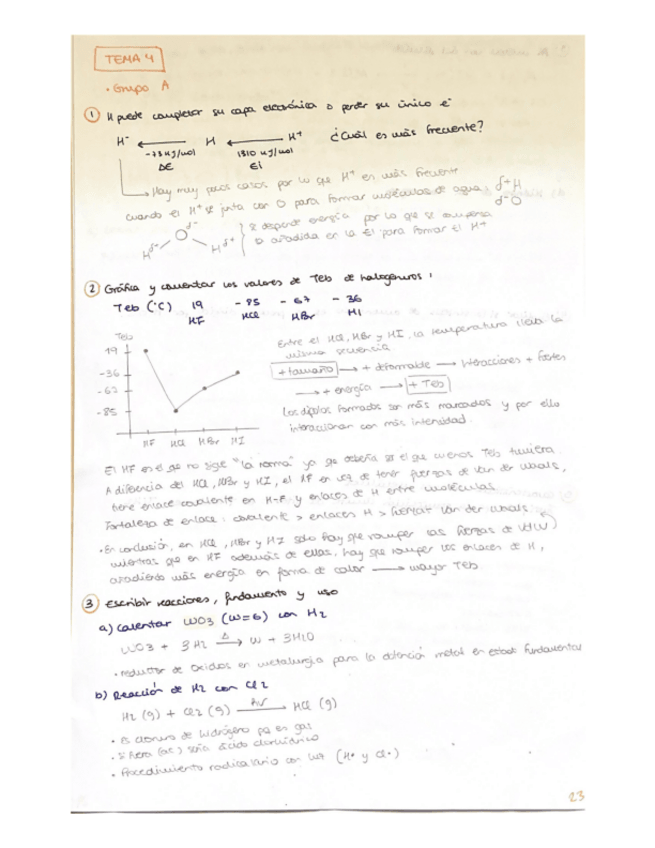 TEMA 4
• Grupo A
1 H puede completar su capa electrónica o perder su único e-
H- ← H ← H+ ¿Cuál es más frecuente?
-73 kJ/mol 1310 kJ/mol
ΔE Ei
Hay muy pocos casos por lo que H+ en más frecuente
cuando el H+ se junta con O para formar moléculas de agua: δ+ H
δ- O
δ-
O
H δ+ H δ+
se desprende energía por lo que se compensa
añadida en la Ei para formar el H+
2 Gráfica y comentar los valores de Teb de halogenuros:
Teb (°C) 19 -85 -67 -36
HF HCl HBr HI
Teb
19
-36
-67
-85
HF HCl HBr HI
Entre el HCl, HBr y HI, la temperatura lleva la
misma secuencia
+ tamaño → + deformable → Interacciones + fuertes
→ + energía → + Teb
Los dipolos formados son más marcados y por ello
interaccionan con más intensidad.
El HF es el que no sigue "la norma" ya que debería ser el que menos Teb tuviera.
A diferencia del HCl, HBr y HI, el HF en vez de tener fuerzas de Van der Waals,
tiene enlace covalente en H-F y enlaces de H entre moléculas.
Fortaleza de enlace: covalente > enlaces H > fuerzas Van der Waals
• En conclusión, en HCl, HBr y HI solo hay que romper las fuerzas de VdW
mientras que en HF además de ellas, hay que romper los enlaces de H,
añadiendo más energía en forma de calor → mayor Teb
3 Escribir reacciones, fundamento y uso
a) Calentar WO3 (W=6) con H2
WO3 + 3H2 Δ→ W + 3H2O
• reductor de óxidos en metalurgia para la obtención metal en estado fundamental
b) Reacción de H2 con Cl2
H2 (g) + Cl2 (g) hν→ HCl (g)
• Es cloruro de hidrógeno pq es gas
• Si fuera (ac) sería ácido clorhídrico
• Procedimiento radicalario con luz (H• y Cl•)
23